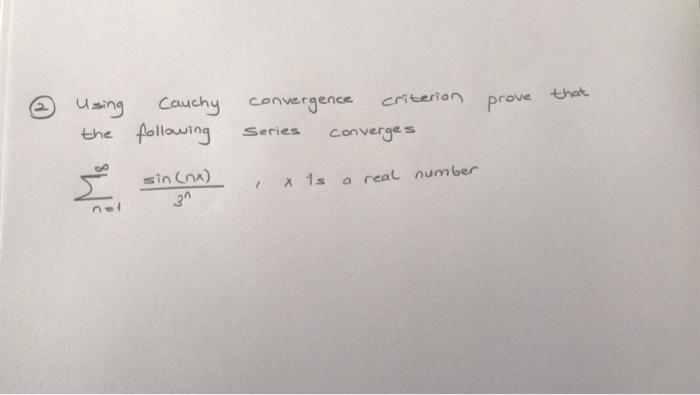 ② Using Cauchy convergence criterion prove that
the following series converges
∞
∑ sin(nx) / 3ⁿ , x is a real number
n=1